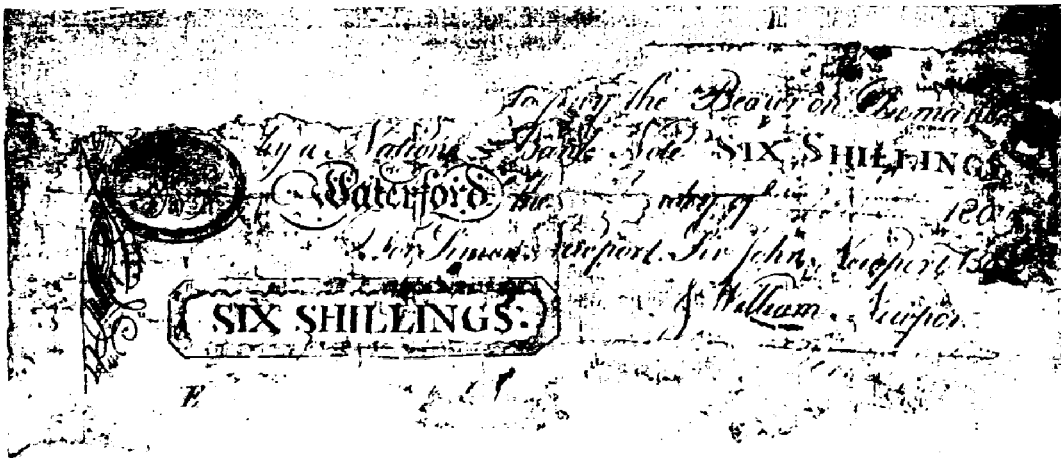 To pay the Bearer on Demand
by a National Bank Note SIX SHILLINGS
Waterford the day of 180
For Simon Newport Sir John Newport Bar
& William Newport
SIX SHILLINGS.
E